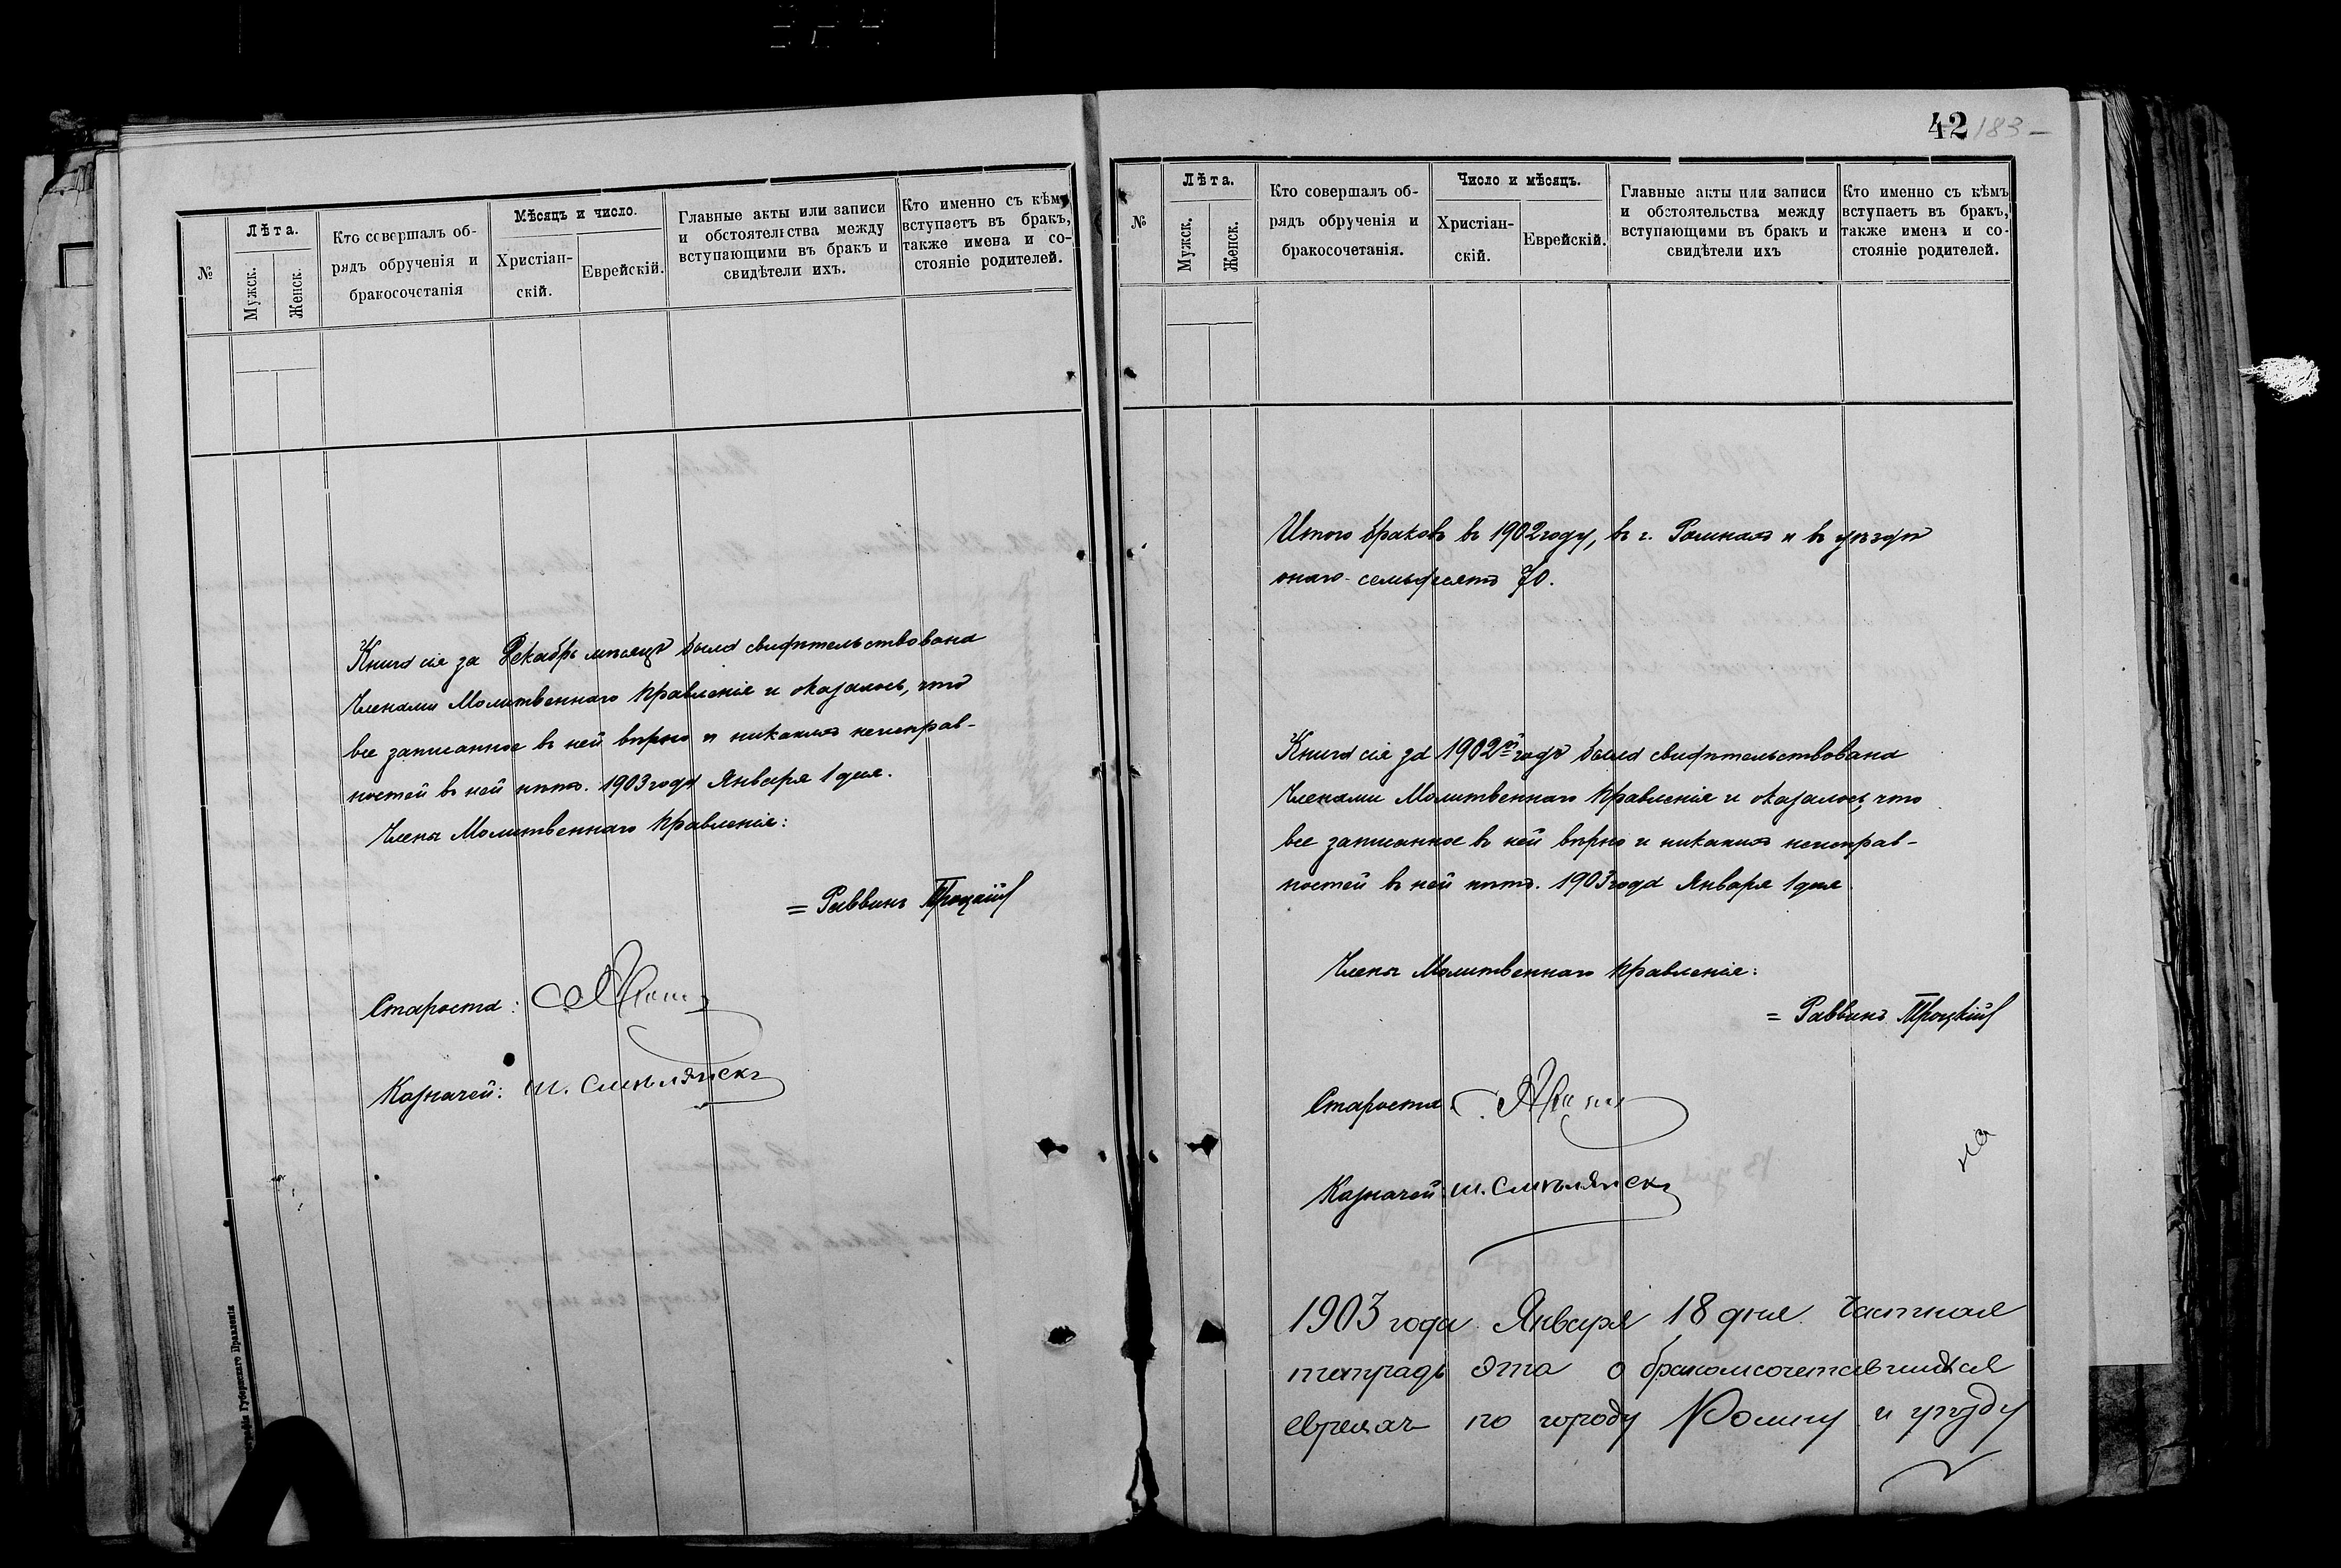 №
Лѣта.
Мужск.
Женск.
Кто совершалъ об-
рядъ обрученія и
бракосочетанія
Мѣсяцъ и число.
Христіан-
скій.
Еврейскій.
Главные акты или записи
и обстоятельства между
вступающими въ бракъ и
свидѣтели ихъ.
Кто именно съ кѣмъ
вступаетъ въ бракъ,
также имена и со-
стояніе родителей.
Книга сія за Декабрь мѣсяцъ была свидѣтельствована
Членами Молитвеннаго Правленія и оказалось, что
все записанное въ ней вѣрно и никакихъ неисправ-
ностей въ ней нѣтъ. 1903 года Января 1 дня.
Члены Молитвеннаго Правленія:
= Раввинъ Троцкій
Староста:
Казначей: Ш. Смѣлянск
Губернскаго Правленія
42 183 –
№
Лѣта.
Мужск.
Женск.
Кто совершалъ об-
рядъ обрученія и
бракосочетанія.
Число и мѣсяцъ.
Христіан-
скій.
Еврейскій.
Главные акты или записи
и обстоятельства между
вступающими въ бракъ и
свидѣтели ихъ
Кто именно съ кѣмъ
вступаетъ въ бракъ,
также имена и со-
стояніе родителей.
Итого браковъ въ 1902 году, въ г. Ромнахъ и въ уѣздѣ
онаго - семьдесятъ 70.
Книга сія за 1902й годъ была свидѣтельствована
Членами Молитвеннаго Правленія и оказалось, что
все записанное въ ней вѣрно и никакихъ неисправ-
ностей въ ней нѣтъ. 1903 года Января 1 дня
Члены Молитвеннаго Правленія:
= Раввинъ Троцкій
Староста
Казначей: Ш. Смѣлянск
на
1903 года Января 18 дня. Частная
тетрадь эта о бракомсочетавшихся
евреяхъ по городу Ромну и уѣзду